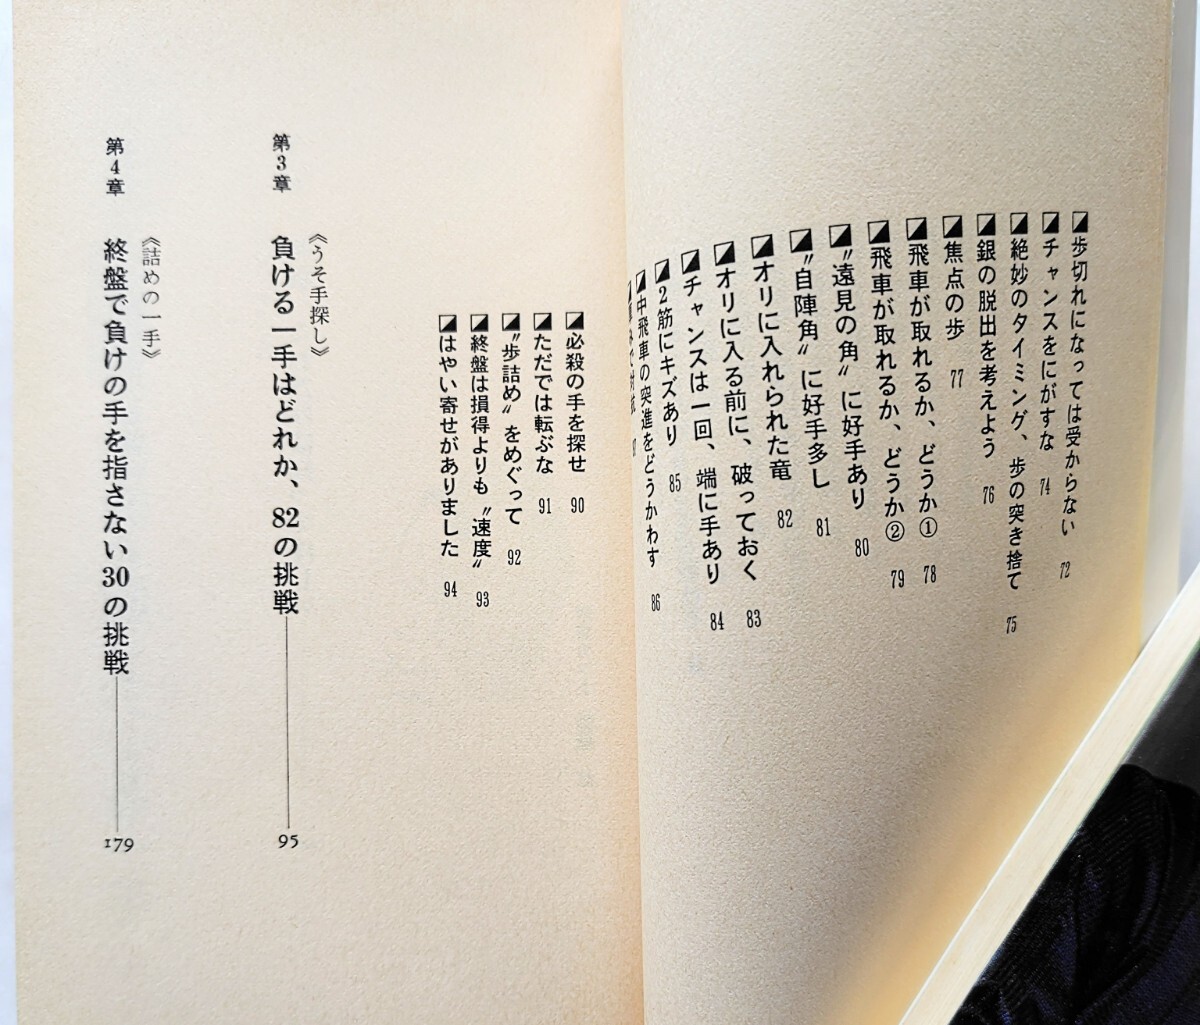 歩切れになっては受からない 72
チャンスをにがすな 74
絶妙のタイミング、歩の突き捨て 75
銀の脱出を考えよう 76
焦点の歩 77
飛車が取れるか、どうか① 78
飛車が取れるか、どうか② 79
〝遠見の角〟に好手あり 80
〝自陣角〟に好手多し 81
オリに入れられた竜 82
オリに入る前に、破っておく 83
チャンスは一回、端に手あり 84
2筋にキズあり 85
中飛車の突進をどうかわす 86
必殺の手を探せ 90
ただでは転ぶな 91
〝歩詰め〟をめぐって 92
終盤は損得よりも〝速度〟 93
はやい寄せがありました 94
《うそ手探し》
第3章 負ける一手はどれか、82の挑戦 95
《詰めの一手》
第4章 終盤で負けの手を指さない30の挑戦 179